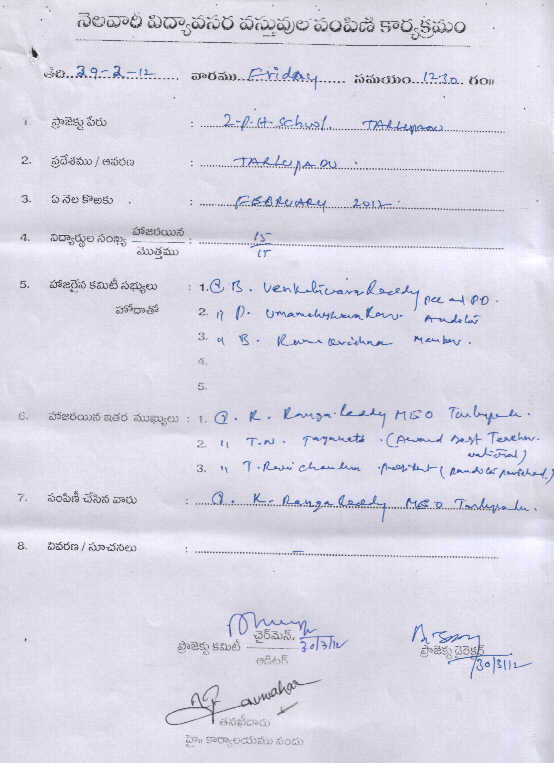 నెలవారీ విద్యావసర వస్తువుల పంపిణీ కార్యక్రమం
తేది. 29-2-12 వారము Friday సమయం 12-30 గం॥
1. ప్రాజెక్టు పేరు : 2-P.H-School, TARLUPADU
2. ప్రదేశము / ఆవరణ : TARLUPADU.
3. ఏ నెల కొఱకు : FEBRUARY 2012.
4. విద్యార్థుల సంఖ్య హాజరయిన / మొత్తము : 15 / 15
5. హాజరైన కమిటీ సభ్యులు : 1. B. Venkateswara Reddy and PD.
హోదాతో 2. " P. Umamaheshwara Rao.
3. " B. Rama Krishna Member.
4.
5.
6. హాజరయిన ఇతర ముఖ్యులు : 1. K. Ranga Reddy MEO Tarlupadu.
2. " T.N. (Award Best Teacher national)
3. " T. Ravi Chandra President
7. పంపిణీ చేసిన వారు : K. Ranga Reddy MEO Tarlupadu.
8. వివరణ / సూచనలు : —
ప్రాజెక్టు కమిటీ ఛైర్‌మెన్, 30/3/12
ఆడిటర్
ప్రాజెక్టు డైరెక్టర్
30/3/12
తనఖీదారు
హై॥ కార్యాలయము నందు